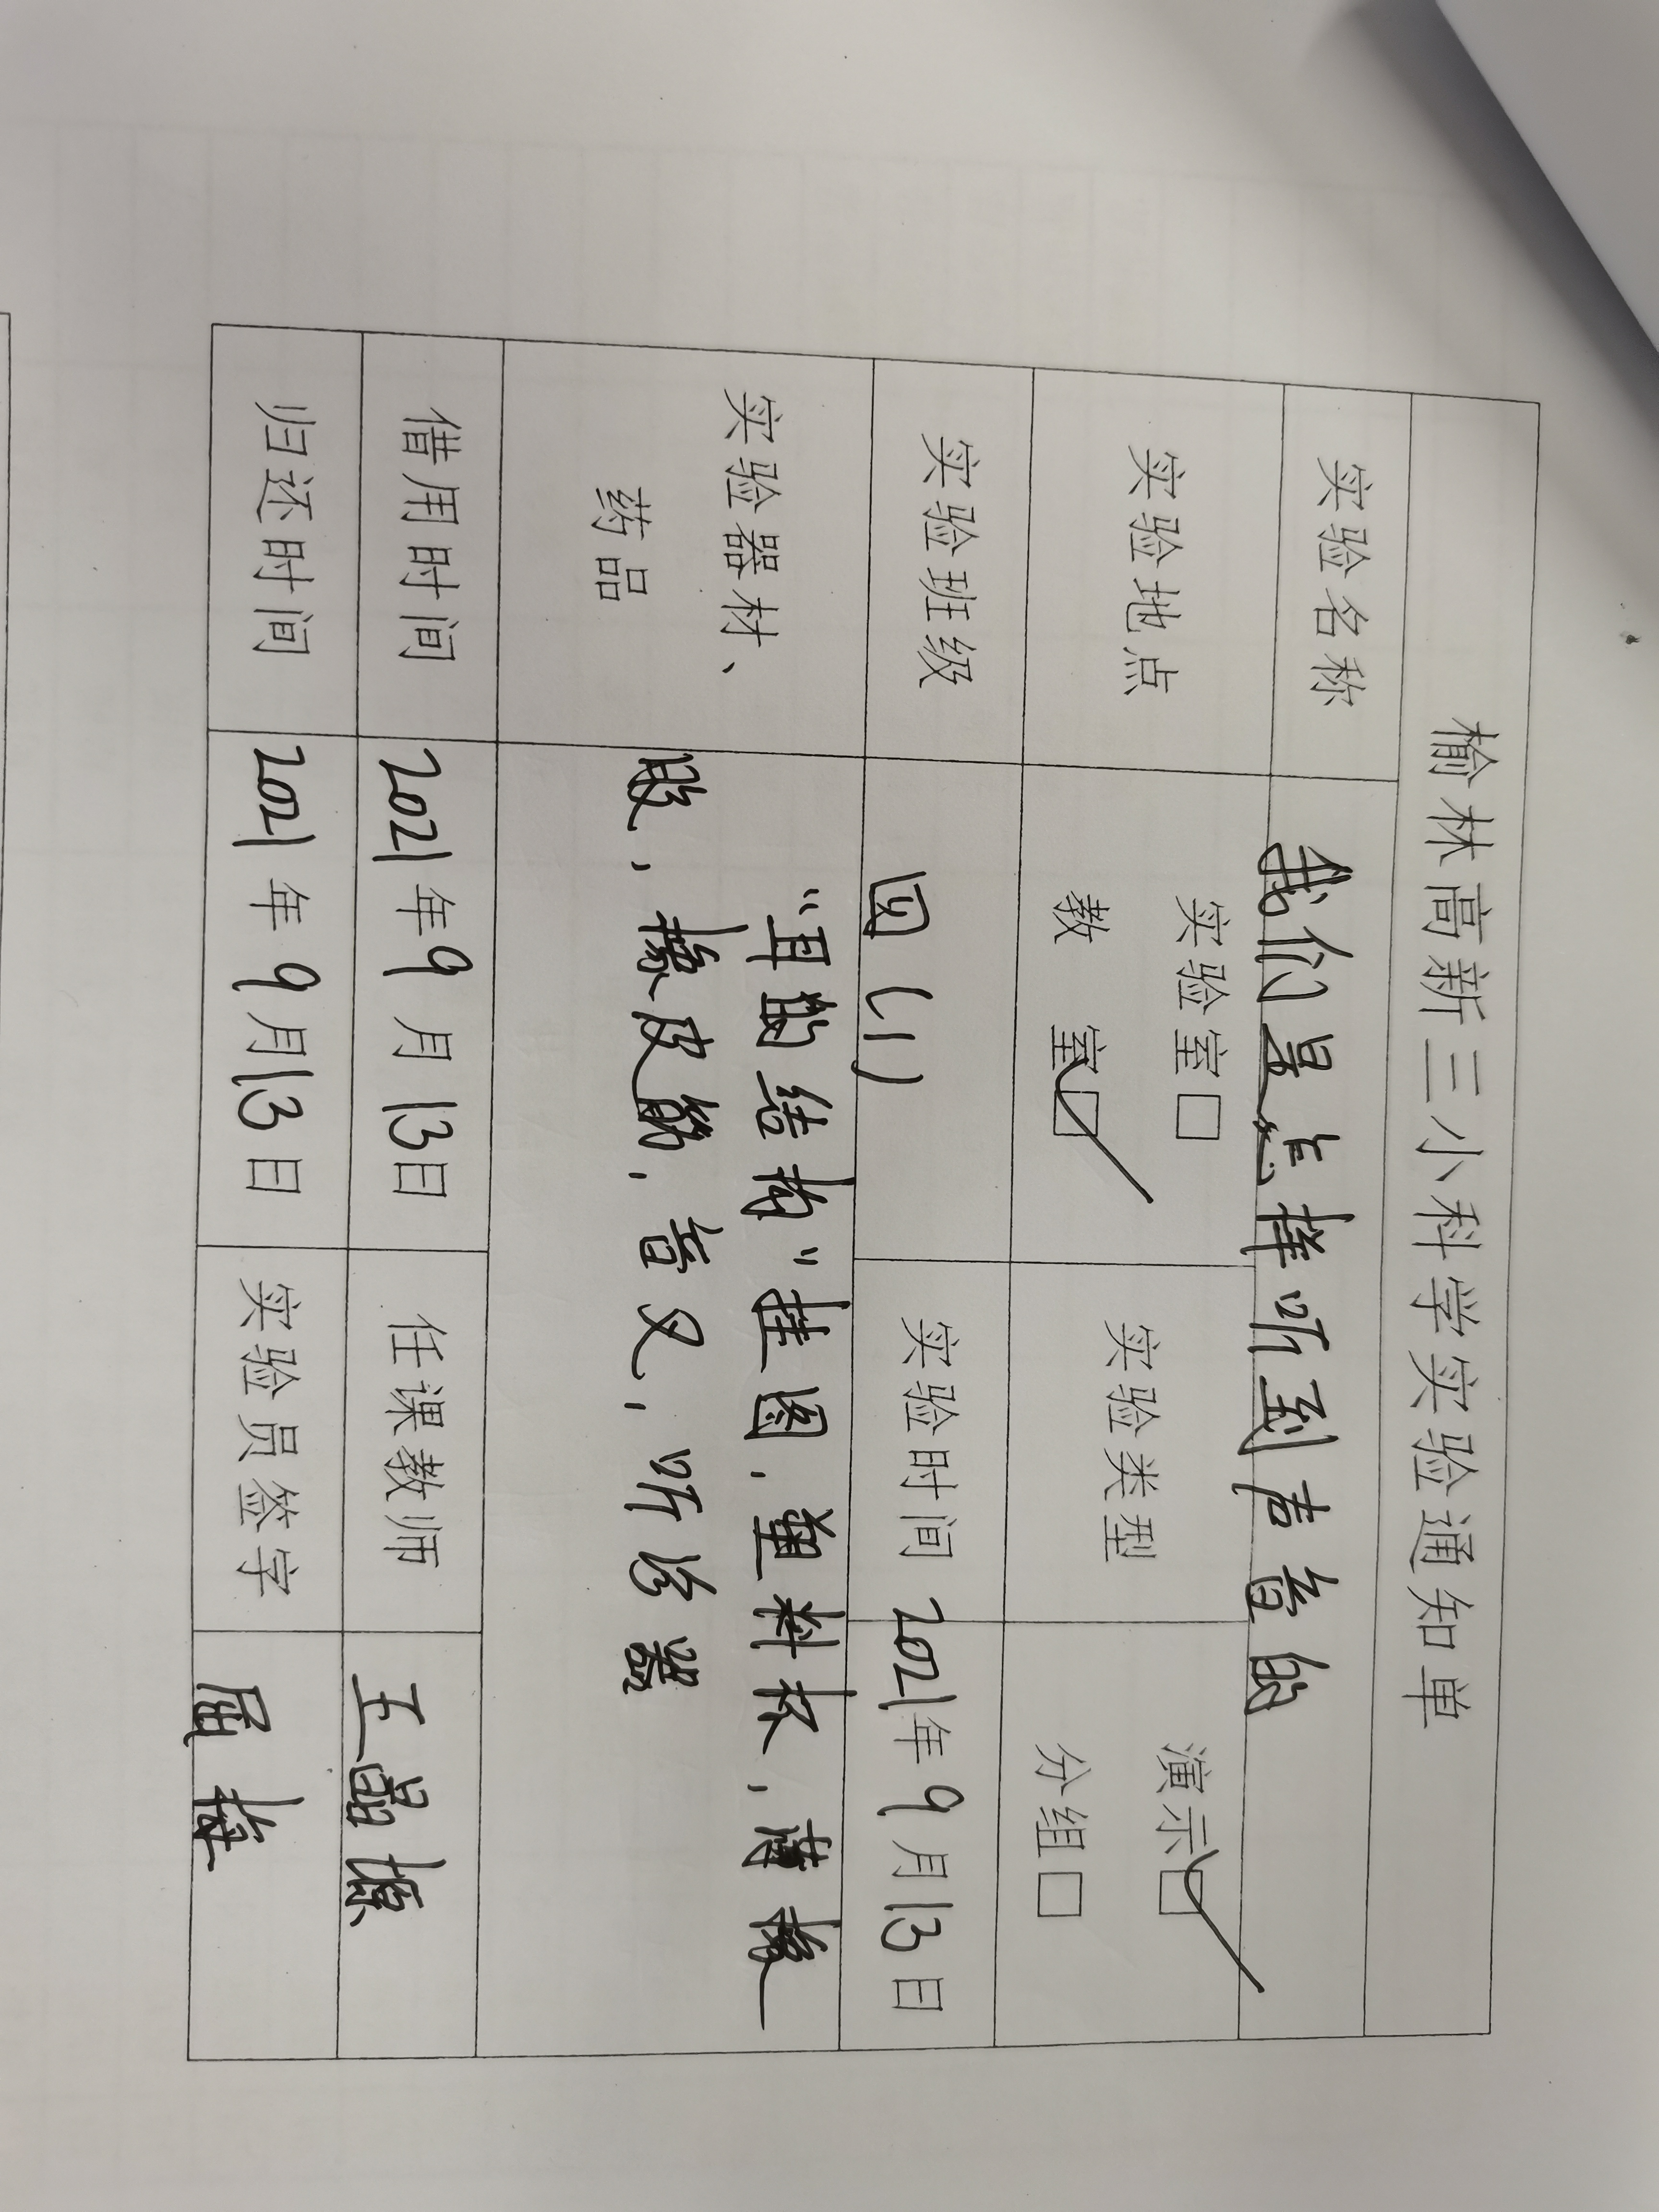 榆林高新三小科学实验通知单
实验名称 我们是怎样听到声音的
实验地点 实验室□ 教 室☑ 实验类型 演示☑ 分组□
实验班级 四(1) 实验时间 2021年9月13日
实验器材、药品 "耳的结构"挂图,塑料杯,薄橡
皮,橡皮筋,音叉,听诊器
借用时间 2021年9月13日 任课教师 王晶
归还时间 2021年9月13日 实验员签字 屈